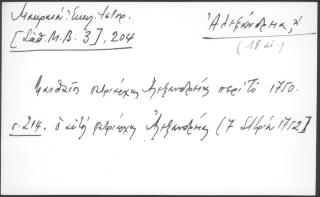 Μακραίου: Ὑπομ. Ἱστορ.
[Σάθ. Μ.Β. 3], 204
Ἀλεξάνδρεια,
(18 αἰ.)
Ματθαῖος πατριάρχης Ἀλεξανδρείας περὶ τὸ 1750.
σ. 214. ὁ αὐτὸς πατριάρχης Ἀλεξανδρείας (7 1752]